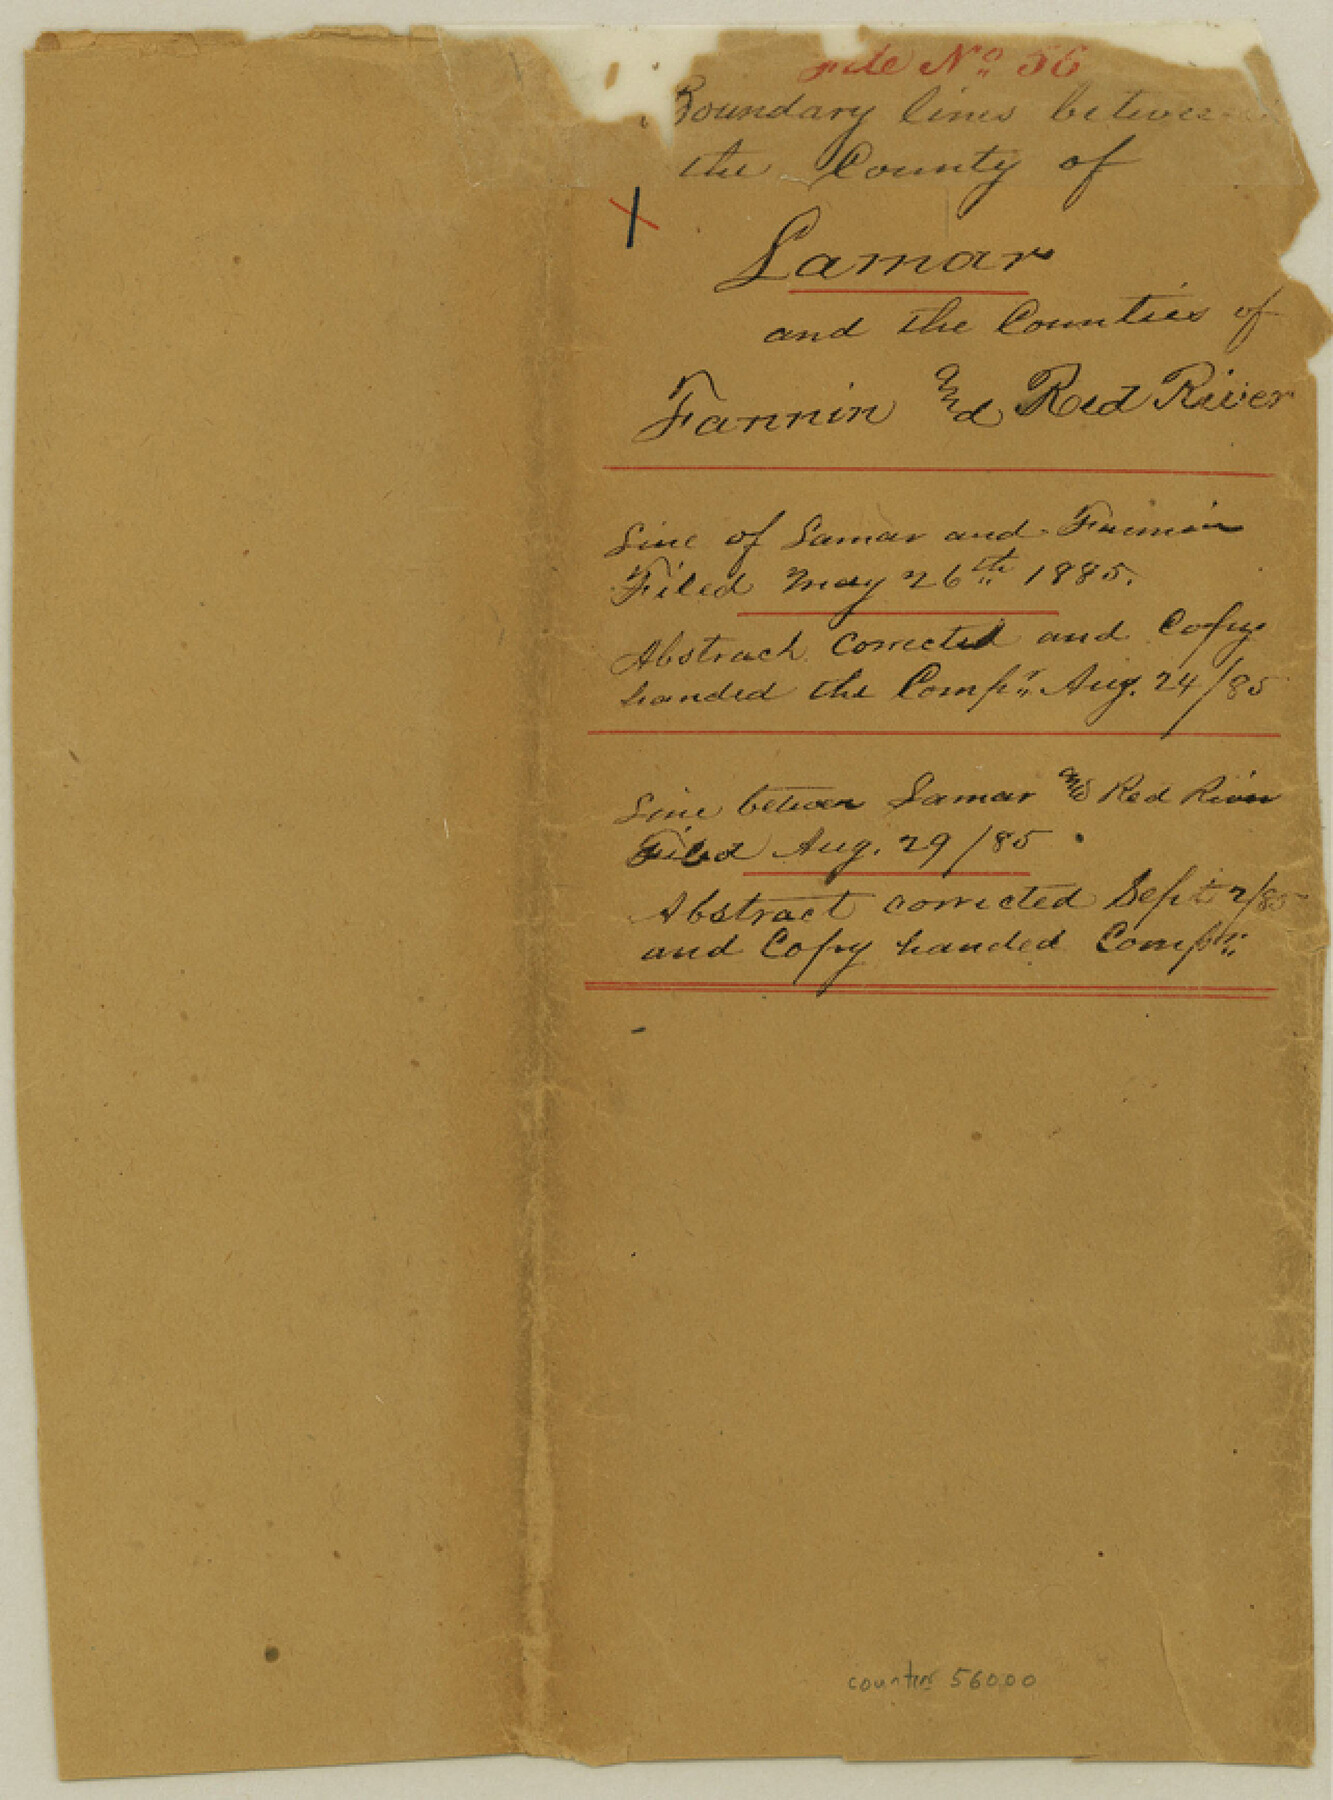 File No 56
Boundary lines between
the County of
Lamar
and the Counties of
Fannin and Red River
Line of Lamar and Fannin
Filed May 26th 1885.
Abstract corrected and Copy
handed the Compr. Aug. 24/85
Line between Lamar and Red River
Filed Aug. 29/85
Abstract corrected Sept 2/85
and Copy handed Compr.
counter 56000